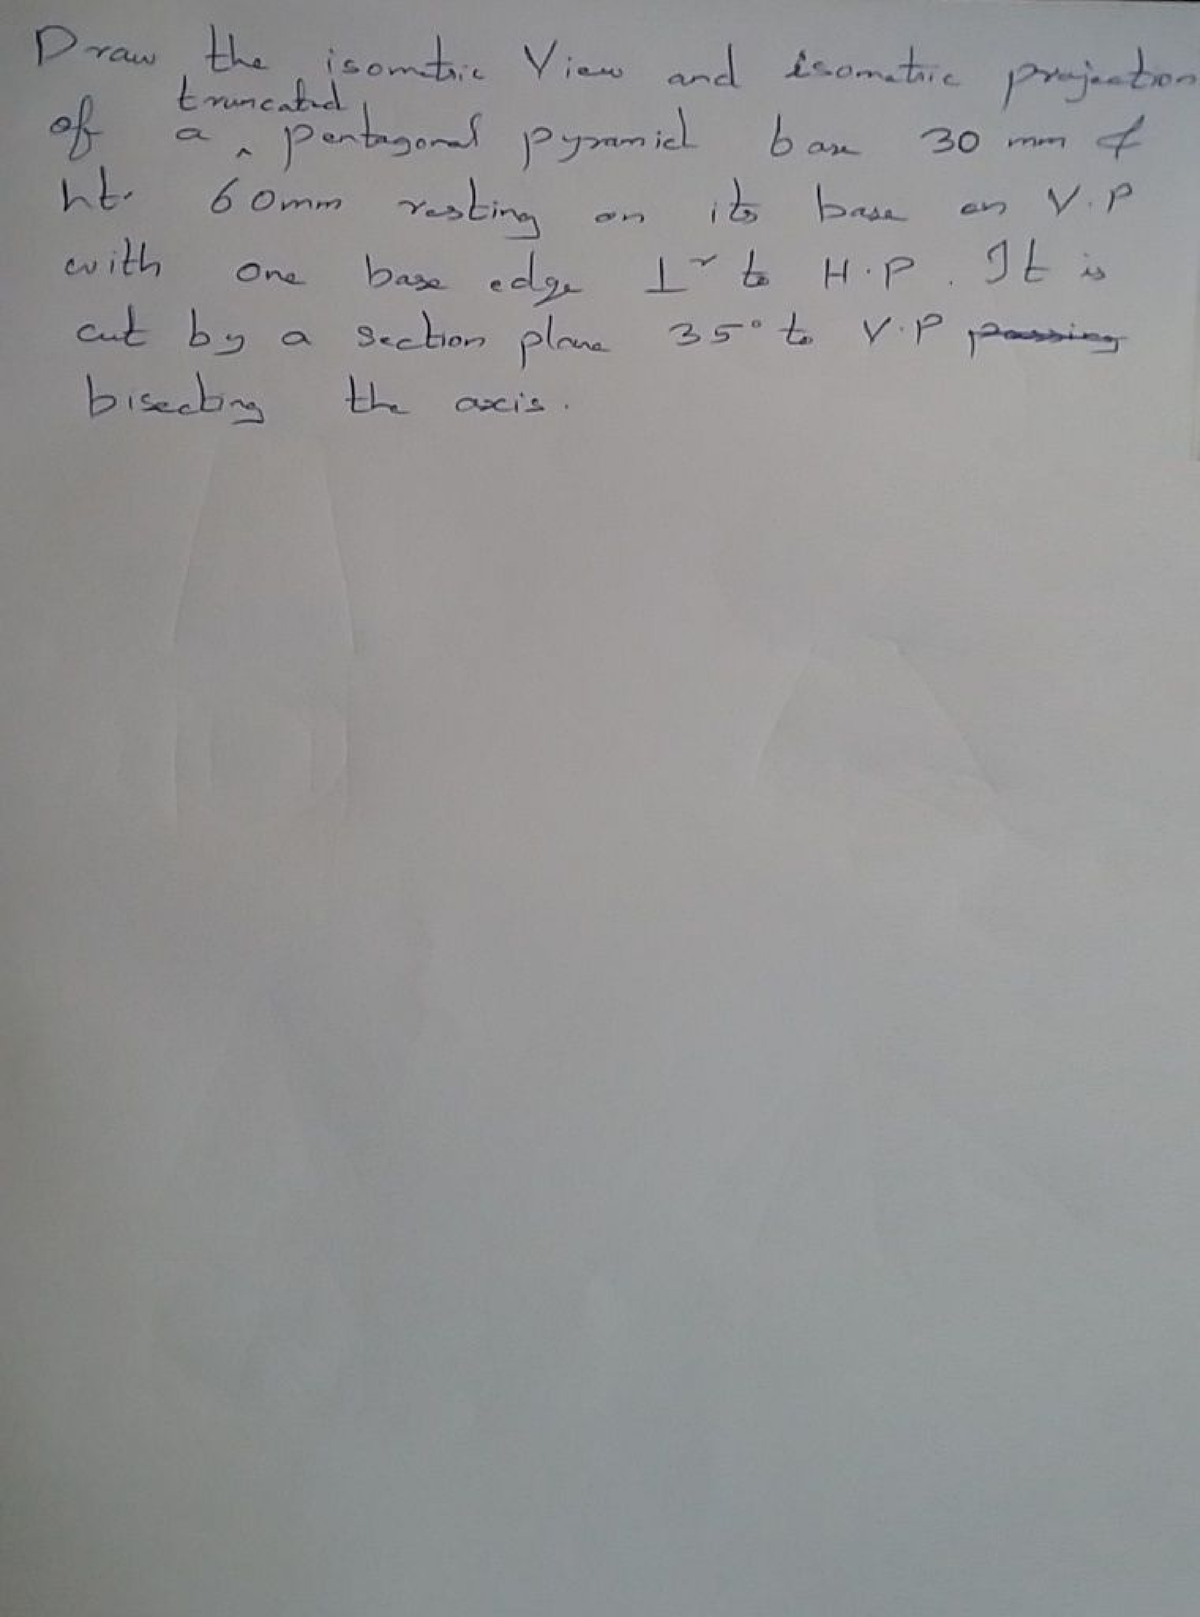 Draw the isometric View and isometric projection
of a ^ truncated pentagonal pyramid base 30 mm &
ht. 60mm resting on its base on V.P
with one base edge ⊥r to H.P. It is
cut by a section plane 35° to V.P passing
bisecting the axis.